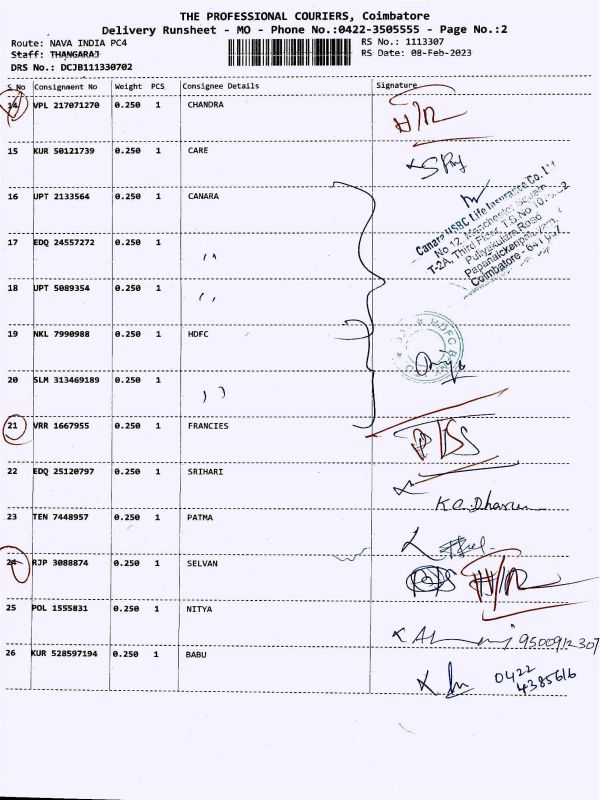 THE PROFESSIONAL COURIERS, Coimbatore
Delivery Runsheet - MO - Phone No.:0422-3505555 - Page No.:2
Route: NAVA INDIA PC4
Staff: THANGARAJ
DRS No.: DCJB111330702
RS No.: 1113307
RS Date: 08-Feb-2023
S No Consignment No Weight PCS Consignee Details Signature
14 VPL 217071270 0.250 1 CHANDRA H/R
15 KUR 50121739 0.250 1 CARE
16 UPT 2133564 0.250 1 CANARA
Canara HSBC Life Insurance Co. Ltd
No 12, Manchester Square
T-2A, Third Floor, T.S.No
Puliyakulam Road
Papanaickenpalayam,
Coimbatore - 641 037
17 EDQ 24557272 0.250 1 ''
18 UPT 5089354 0.250 1 ''
19 NKL 7990988 0.250 1 HDFC
HDFC
20 SLM 313469189 0.250 1 ''
21 VRR 1667955 0.250 1 FRANCIES
22 EDQ 25120797 0.250 1 SRIHARI
23 TEN 7448957 0.250 1 PATMA
24 RJP 3088874 0.250 1 SELVAN H/R
25 POL 1555831 0.250 1 NITYA
26 KUR 528597194 0.250 1 BABU 0422
4385616